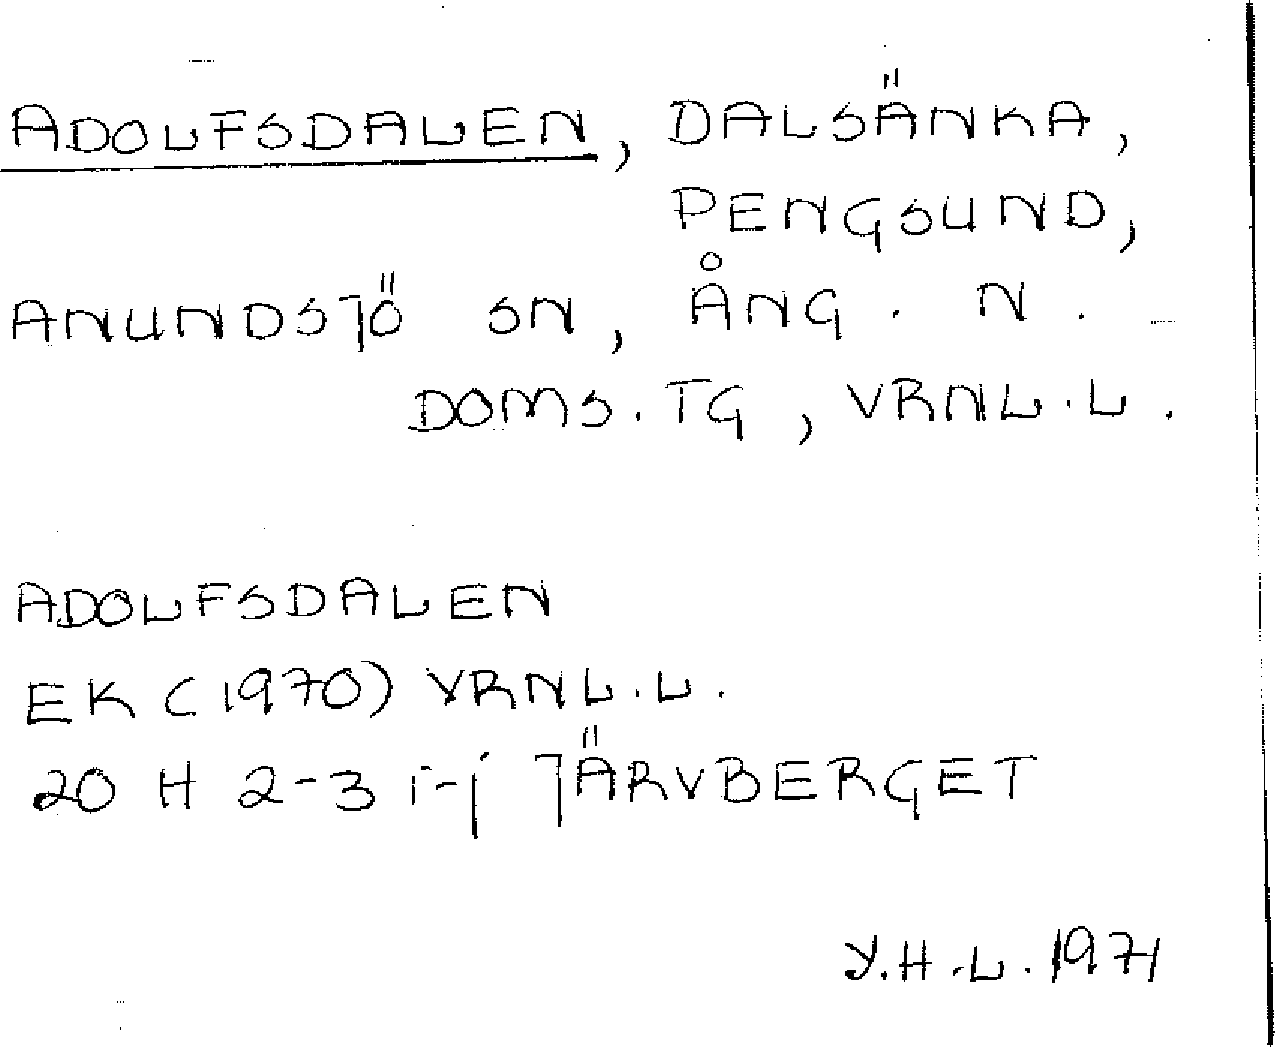 ADOLFSDALEN, DALSÄNKA,
PENGSUND,
ANUNDSJÖ SN, ÅNG. N.
DOMS.TG, VRNL.L.
ADOLFSDALEN
EK (1970) VRNL.L.
20 H 2-3 i-j JÄRVBERGET
Y.H.L. 1971